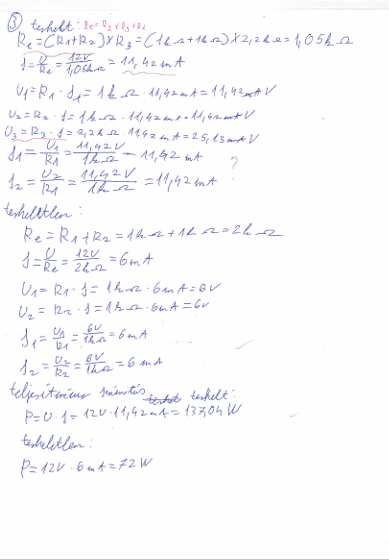 ③ terhelt: Re=R2×R3+R1
Re=(R1+R2)×R3=(1kΩ+1kΩ)×2,2kΩ=1,05kΩ
I=U/Re=12V/1,05kΩ=11,42mA
U1=R1·I1=1kΩ·11,42mA=11,42mAV
U2=R2·I=1kΩ·11,42mA=11,42mAV
U3=R3·I=2,2kΩ 11,42mA=25,13mAV
I1=U1/R1=11,42V/1kΩ=11,42mA
I2=U2/R1=11,42V/1kΩ=11,42mA ?
terheletlen:
Re=R1+R2=1kΩ+1kΩ=2kΩ
I=U/Re=12V/2kΩ=6mA
U1=R1·I=1kΩ·6mA=6V
U2=R2·I=1kΩ·6mA=6V
I1=U1/R1=6V/1kΩ=6mA
I2=U2/R2=6V/1kΩ=6mA
teljesítmény számítás terhelt:
P=U·I=12V·11,42mA=137,04W
terheletlen:
P=12V·6mA=72W